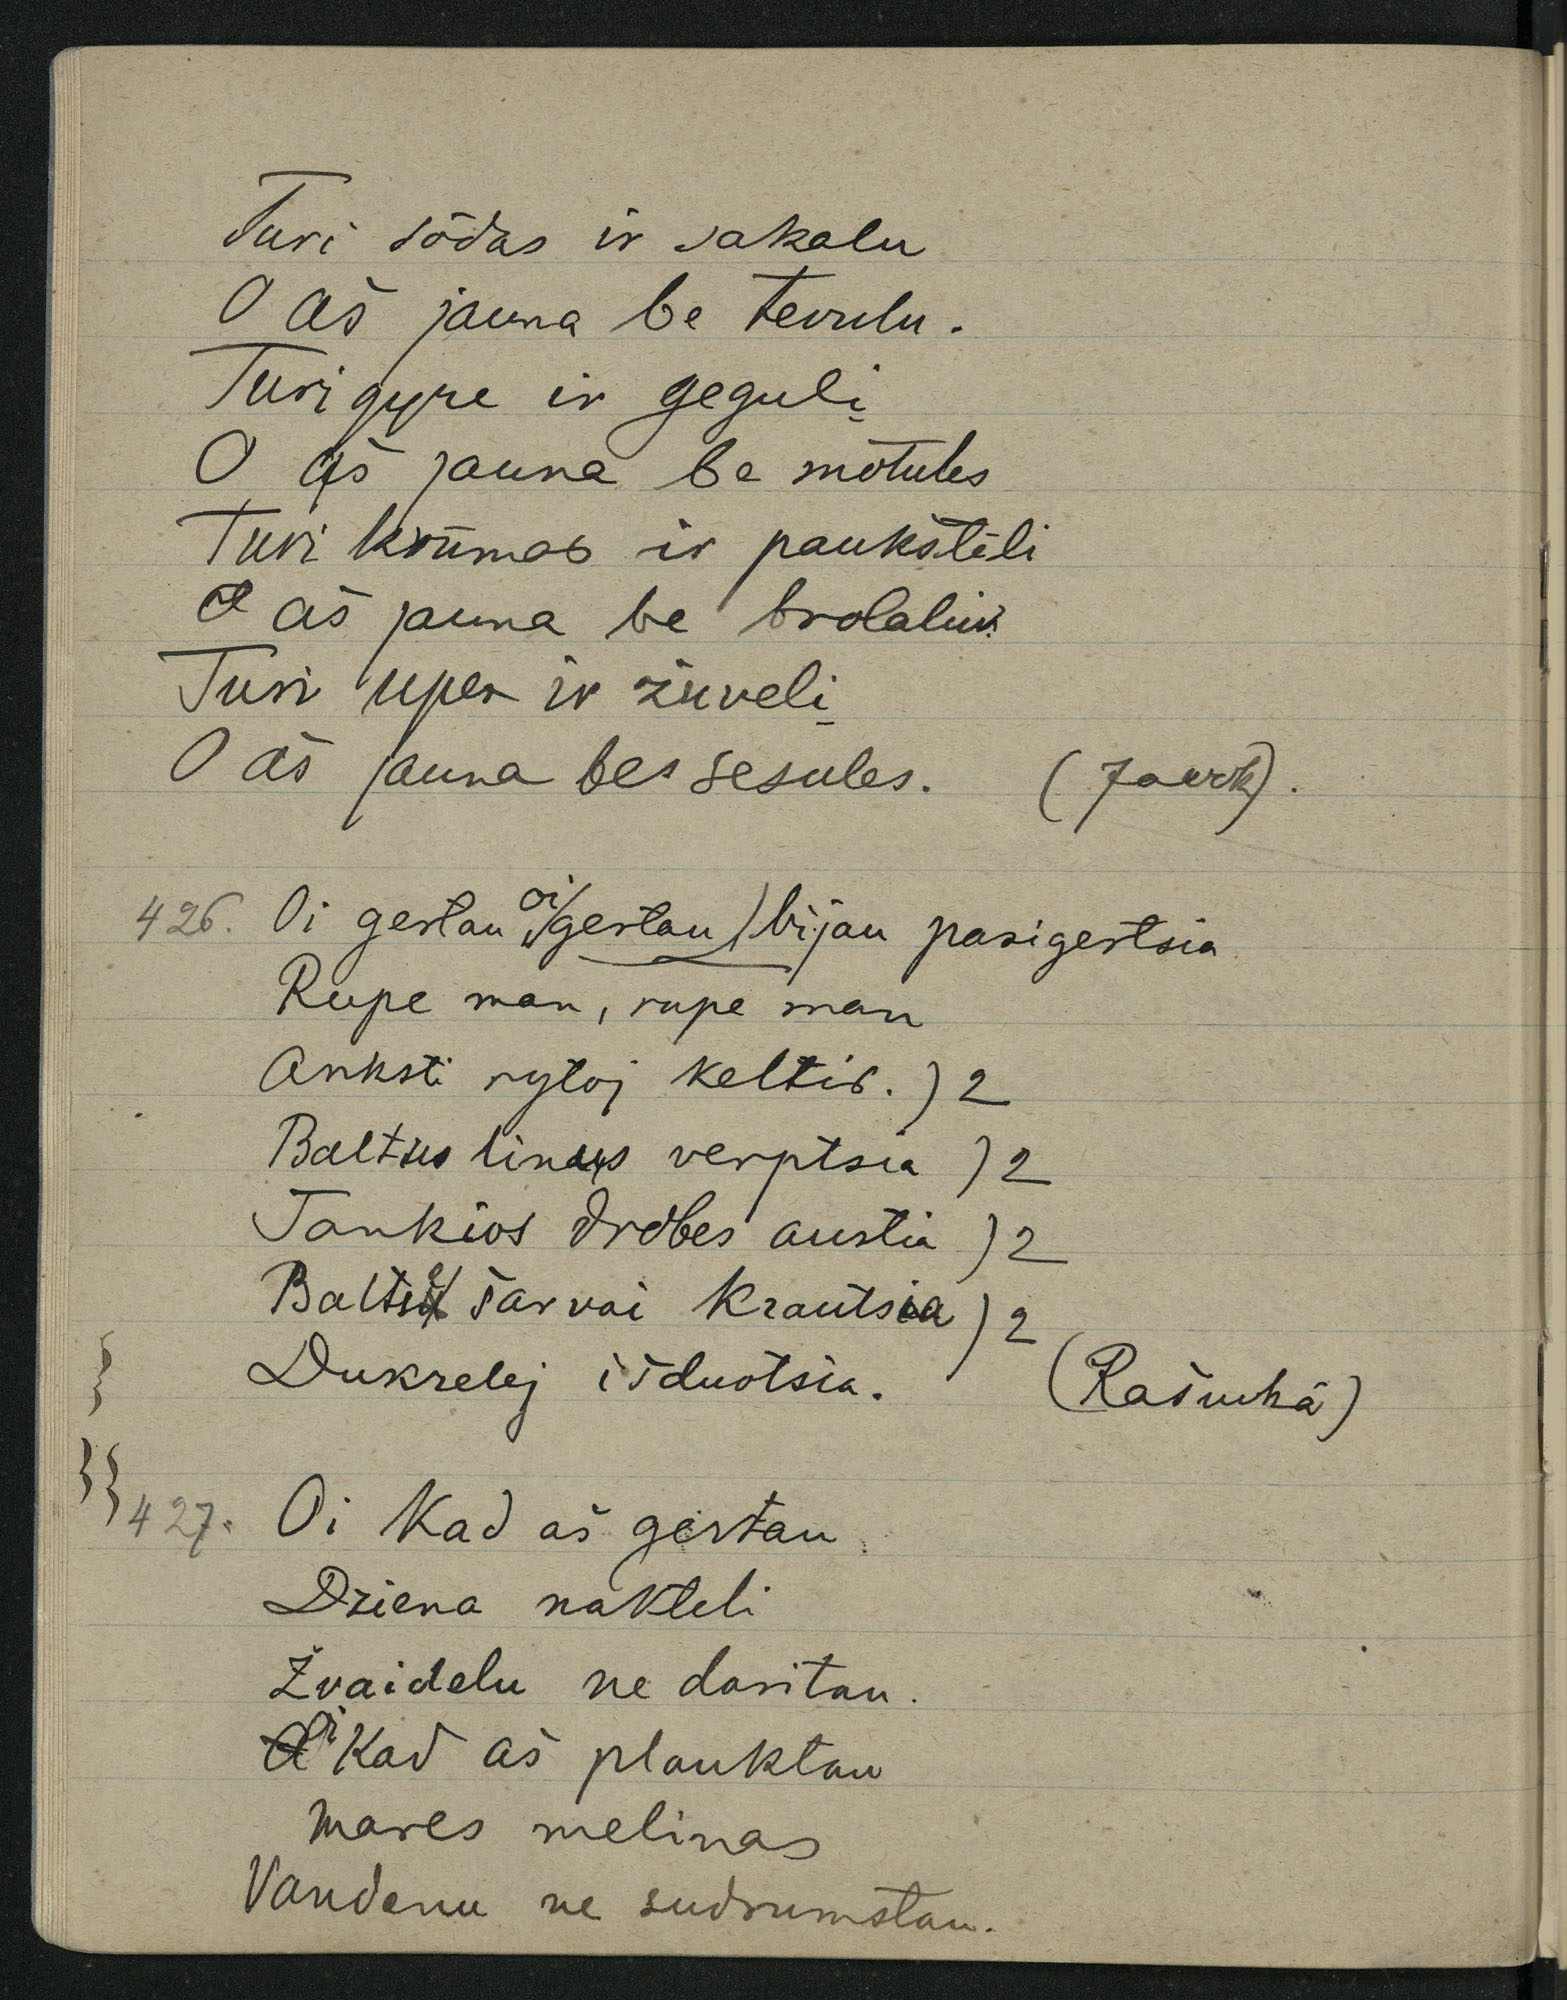 Turi sōdas ir sakalu
O aš jauna be tevulu.
Turi gyre ir gegulį
O aš jauna be mōtules
Turi krūmas ir paukštėli
O aš jauna be brolaliu
Turi upes ir žuvelį
O aš jauna bes sesules.
426. Oi gertau oi gertau) bijau pasigertsia
Rupe man, rupe man
Anksti rytoj keltis. ) 2
Baltus linus verptsia ) 2
Tankios drobes austia ) 2
Baltie šarvai krautsia ) 2
Dukrelej išduotsia. (Rašuikā)
427. Oi kad aš gertau
Dziena nakteli
Žvaidelu ne daritau.
Oi kad aš plauktau
mares melinas
Vandenu ne sudrumstau.